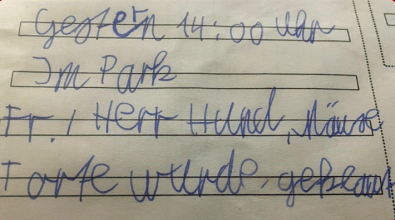 Gestern 14:00 Uhr
Im Park
Fr. / Herr Hund, Mäuse
Torte wurde geklaut